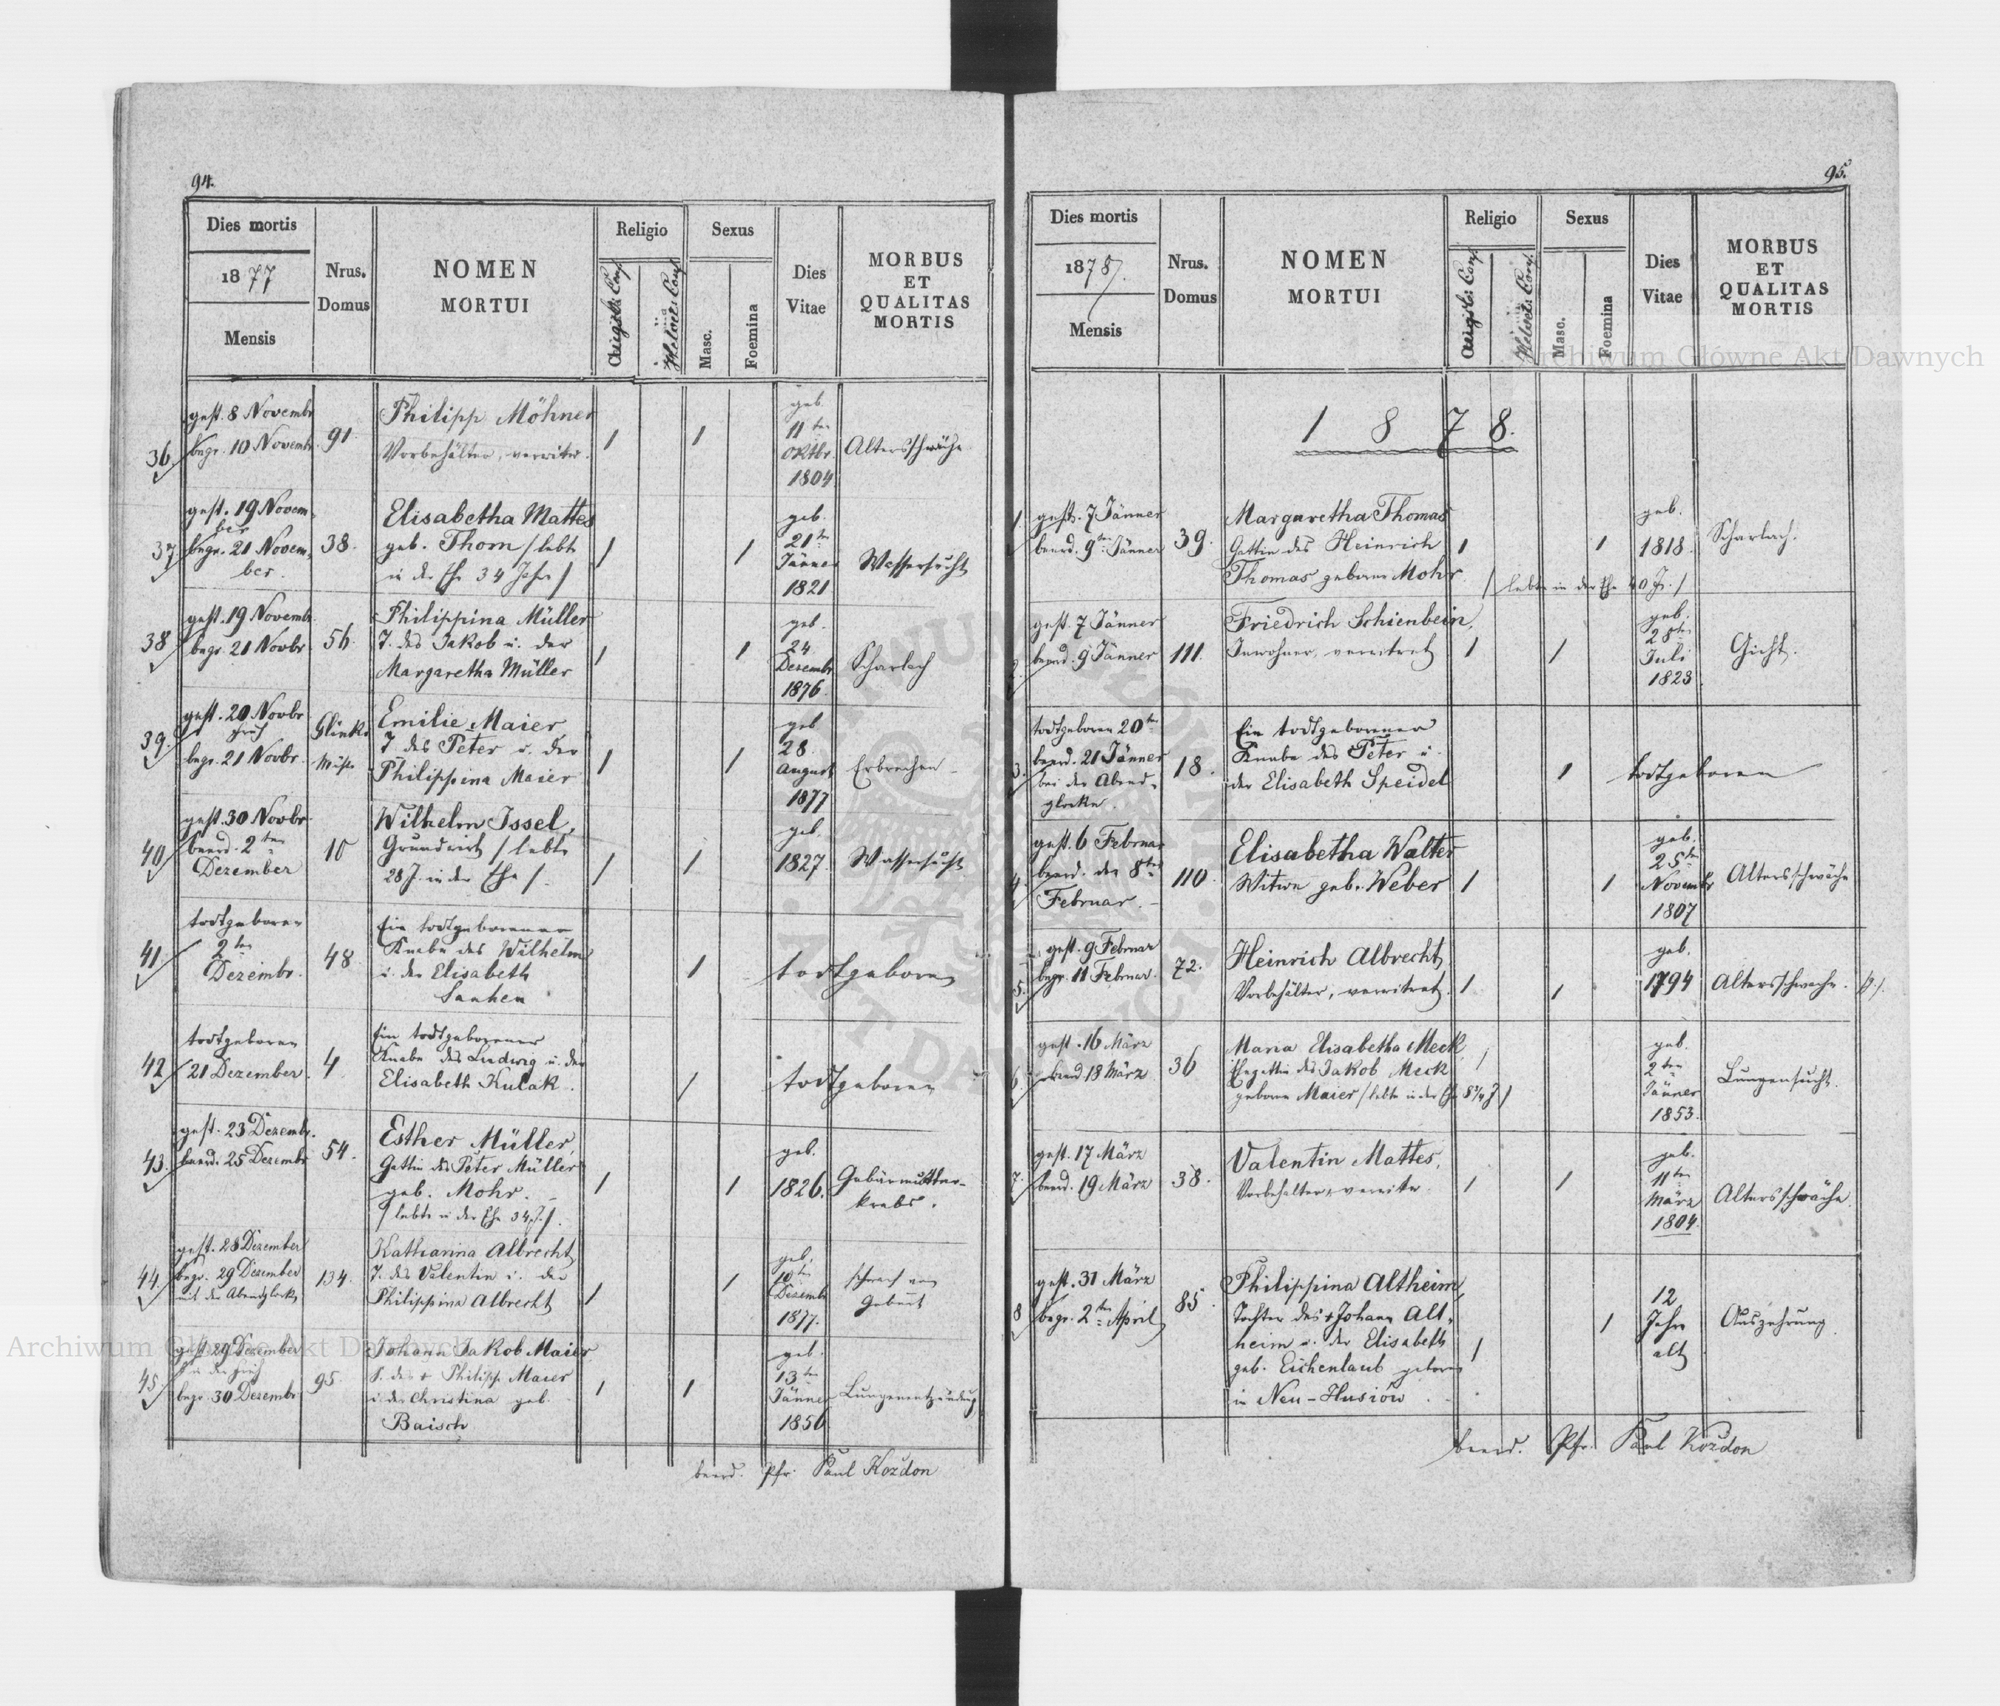 94.
Dies mortis
1877
Mensis
Nrus.
Domus
NOMEN
MORTUI
Religio
Augsb: Conf.
Helvet: Conf.
Sexus
Masc.
Foemina
Dies
Vitae
MORBUS
ET
QUALITAS
MORTIS
36.
gest. 8 Novembr
begr. 10 Novembr.
91.
Philipp Möhner
Vorbehälter, verwitw.
1
1
geb.
11ten
Oktbr.
1804
Altersschwäche
37
gest. 19 Novem-
ber
begr. 21 Novem-
ber.
38.
Elisabetha Mattes
geb. Thom / lebte
in der Ehe 34 Jahr /
1
1
geb.
21ten
Jänner
1821
Wassersucht
38
gest. 19 Novembr.
begr. 21 Novbr
56.
Philippina Müller
T. des Jakob u. der
Margaretha Müller
1
1
geb.
24.
Dezembr
1876.
Scharlach
39.
gest. 20 Novbr
früh
begr. 21 Novbr.
Emilie Maier
T. des Peter u. der
Philippina Maier
1
1
geb
28.
August
1877
Erbrechen
40
gest. 30 Novbr.
beerd. 2ten
Dezember
10
Wilhelm Issel,
Grundwirt / lebte
28 J. in der Ehe /.
1
1
geb.
1827.
Wassersucht
41
todtgeboren
2ten
Dezembr.
48
Ein todtgeborener
Knabe des Wilhelm
u. der Elisabeth
1
todtgeboren
42
todtgeboren
21 Dezember.
4.
Ein todtgeborener
Knabe des Ludwig u. der
Elisabeth Kulak.
1
todtgeboren
43.
gest. 23 Dezembr.
beerd. 25 Dezembr
54.
Esther Müller,
Gattin des Peter Müller
geb. Mohr.
/ lebte in der Ehe 34 J. /.
1
1
geb.
1826.
Gebärmutter-
krebs.
44.
gest. 28 Dezember
begr. 29 Dezember
mit der Abendglocke
134.
Katharina Albrecht,
T. des Valentin u. der
Philippina Albrecht
1
1
geb.
10ten
Dezembr
1877.
schwach von
Geburt
45
gest. 29 Dezember
in der Früh
begr. 30 Dezembr
95.
Johann Jakob Maier
S. des + Philipp Maier
u. der Christina geb.
Baisch
1
1
geb.
13ten
Jänner
1856
Lungenentzündung
beerd. Pfr. Paul Kozdon
95.
Dies mortis
1878.
Mensis
Nrus.
Domus
NOMEN
MORTUI
Religio
Augsb: Conf.
Helvet: Conf.
Sexus
Masc.
Foemina
Dies
Vitae
MORBUS
ET
QUALITAS
MORTIS
1 8 7 8.
1.
gest. 7 Jänner
beerd. 9ten Jänner
39.
Margaretha Thomas
Gattin des Heinrich
Thomas geborne Mohr.
/ lebte in der Ehe 40 J. /
1
1
geb.
1818.
Scharlach.
2.
gest. 7 Jänner
beerd. 9 Jänner
111.
Friedrich Schienbein,
Inwohner, verwitwet
1
1
geb.
28ten
Juli
1823.
Gicht.
3.
todtgeboren 20ten
beerd. 21 Jänner
bei der Abend-
glocke.
18.
Ein todtgeborener
Knabe des Peter u.
der Elisabeth Speidel
1
todtgeboren
4.
gest. 6 Februar
beerd. den 8ten
Februar.
110.
Elisabetha Walter
Witwe geb. Weber
1
1
geb.
25ten
Novembr
1807
Altersschwäche
5.
gest. 9 Februar
begr. 11 Februar.
72.
Heinrich Albrecht,
Vorbehälter, verwitwet.
1
1
geb.
1794
Altersschwäche.
6.
gest. 16 März
beerd 18 März
36
Maria Elisabetha Meck,
Ehegattin des Jakob Meck
geborne Maier / lebte in der Ehe 8¼ J /
1
geb.
2ten
Jänner
1853.
Lungensucht.
7.
gest. 17 März
beerd. 19 März
38.
Valentin Mattes,
Vorbehälter, verwitw.
1
1
geb.
11ten
März
1804.
Altersschwäche.
8
gest. 31 März
begr. 2ten April
85.
Philippina Altheim,
Tochter des + Johann Alt-
heim u. der Elisabeth
geb. Eichenlaub geboren
in Neu-Husiów.
1
1
12
Jahr
alt
Auszehrung.
beerd. Pfr. Paul Kozdon
Archiwum Główne Akt Dawnych
Archiwum Główne Akt Dawnych